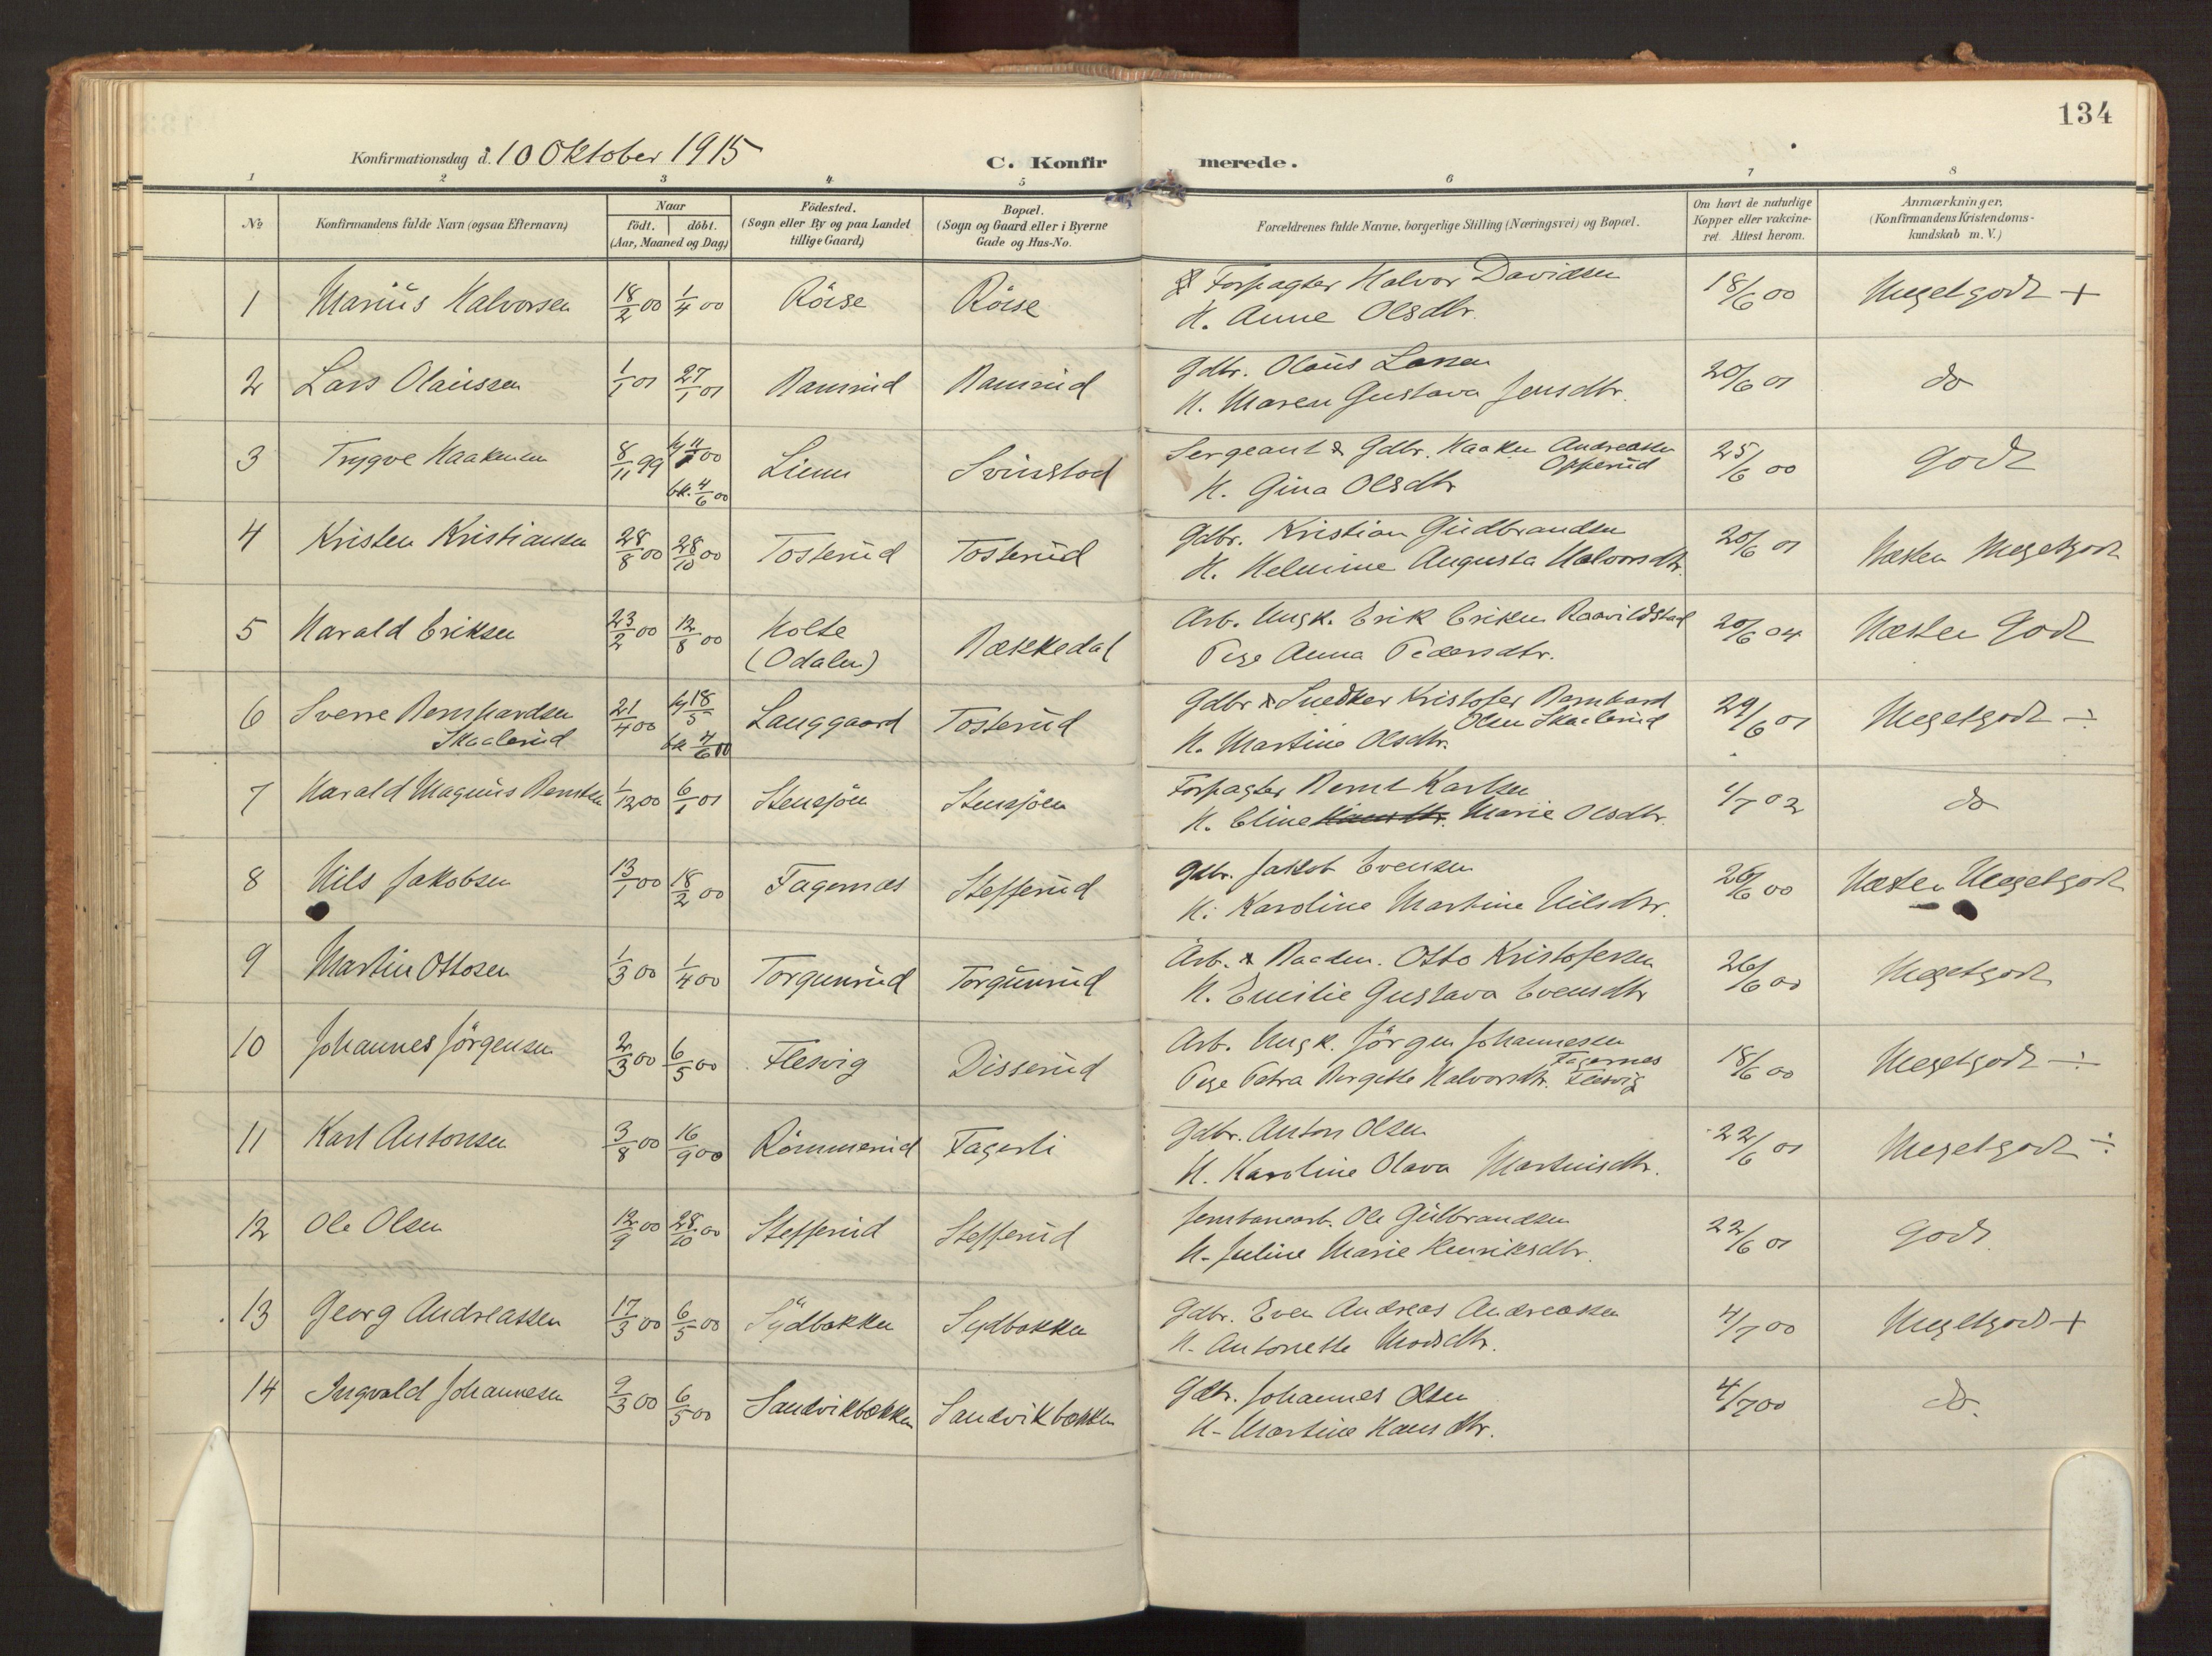 134
Konfirmationsdag d. 10 Oktober 1915
C. Konfirmerede.
1 2 3 4 5 6 7 8
No
Konfirmandens fulde Navn (ogsaa Efternavn)
Naar
födt. döbt.
(Aar, Maaned og Dag)
Födested.
(Sogn eller By og paa Landet
tillige Gaard)
Bopæl.
(Sogn og Gaard eller i Byerne
Gade og Hus-No.
Forældrenes fulde Navne, borgerlige Stilling (Næringsvei) og Bopæl.
Om havt de naturlige
Kopper eller vakcine-
ret. Attest herom.
Anmærkninger.
(Konfirmandens Kristendoms-
kundskab m. V.)
1 Marius Halvorsen 18/2 00 1/4 00 Röise Röise
Forpagter Halvor Davidsen
H. Anne Olsdtr.
18/6 00 Megetgodt +
2 Lars Olaussen 1/1 01 27/1 01 Ramrud Ramrud
Gdbr. Olaus Larsen
H. Maren Gustava Jensdtr.
20/6 01 do
3 Trygve Haakensen 8/11 99 11/ 00 Svinstad
bk. 4/6 00
Sergeant & Gdbr. Haaken Andreassen
Opperud
H. Gina Olsdtr
25/6 00 Godt
4 Kristen Kristiansen 28/8 00 28/10 00 Tosterud Tosterud
Gdbr. Kristian Gudbrandsen
H. Helmine Augusta Halvorsdtr.
20/6 01 Næsten Megetgodt
5 Harald Eriksen 23/2 00 12/8 00 Holte
(Odalen) Bækkedal
Arb. Ungk. Erik Eriksen Raavildstad
Pige Anna Pedersdtr.
20/6 04 Næsten Godt
6 Sverre Bernhardsen
Skaalerud 21/4 00 18/5
bk 4/6 00 Langgaard Tosterud
Gdbr & Snedker Kristofer Bernhard
Olsen Skaalerud
H. Martine Olsdtr.
29/6 01 Megetgodt ÷
7 Harald Magnus Berntsen 1/12 00 6/1 01 Stensjöen Stensjöen
Forpagter Bernt Karlsen
H. Eline Marie Olsdtr.
1/7 02 do
8 Nils Jakobsen 13/1 00 18/2 00 Fagernæs Stefferud
Gdbr. Jakob Evensen
H. Karoline Martine Nilsdtr.
26/6 00 Næsten Megetgodt
9 Martin Ottosen 1/3 00 1/4 00 Torgunrud Torgunrud
Arb. & Baadm. Otto Kristofersen
H. Emilie Gustava Evensdtr
26/6 00 Megetgodt
10 Johannes Jörgensen 2/3 00 6/5 00 Flesvig Disserud
Arb. Ungk. Jörgen Johannessen
Fagernes
Pige Petra Birgitte Halvorsdtr. Flesvig
18/6 00 Megetgodt ÷
11 Karl Antonsen 3/8 00 16/9 00 Römmerud Fagerli
Gdbr. Anton Olsen
H. Karoline Olava Martinsdtr.
22/6 01 Megetgodt ÷
12 Ole Olsen 12/9 00 28/10 00 Stefferud Stefferud
Jernbanearb. Ole Gulbrandsen
H. Juline Marie Henriksdtr.
22/6 01 Godt
13 Georg Andreassen 17/3 00 6/5 00 Sydbakken Sydbakken
Gdbr. Even Andreas Andreassen
H. Antonette
4/7 00 Megetgodt +
14 Ingvald Johannesen 9/3 00 6/5 00 Sandvikbakken Sandvikbakken
Gdbr. Johannes Olsen
H. Martine Hansdtr.
4/7 00 do.